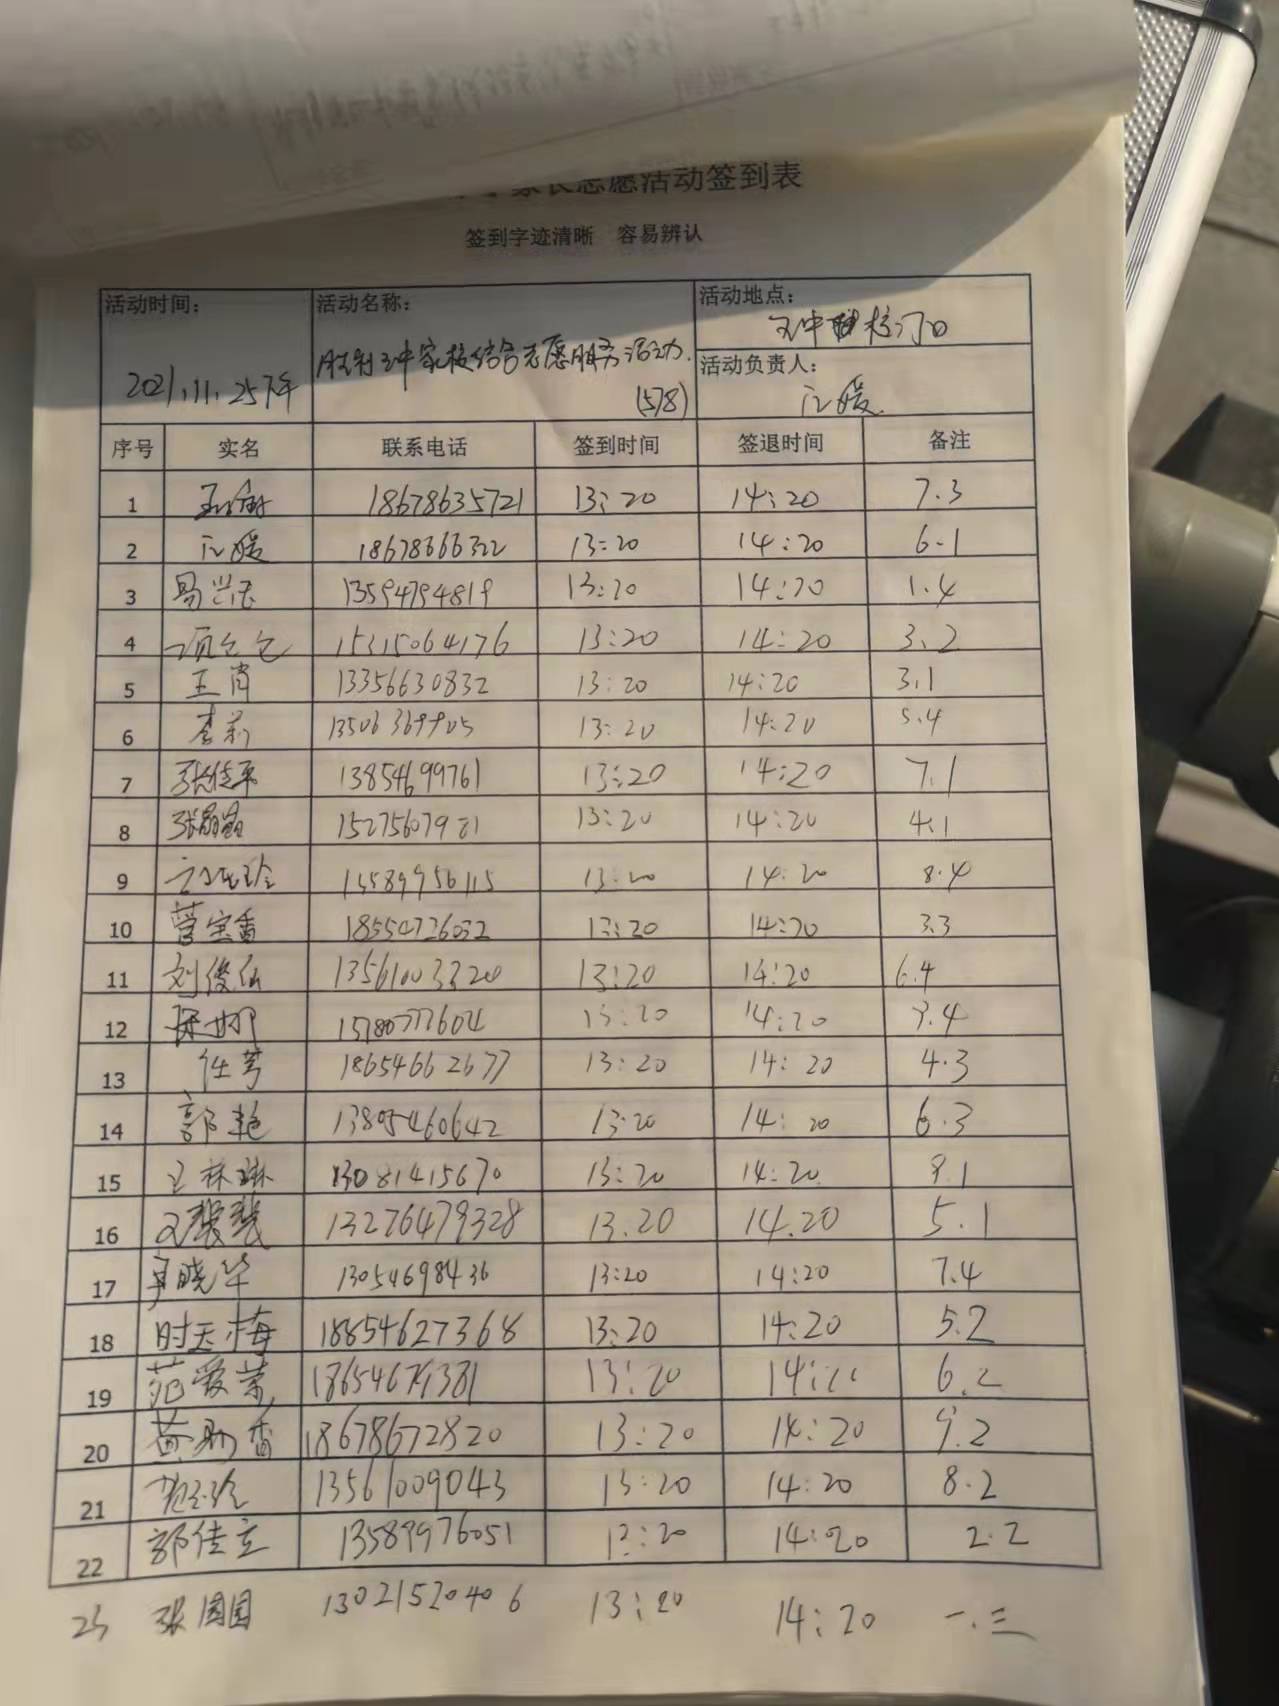 家长志愿活动签到表
签到字迹清晰 容易辨认
活动时间： 活动名称： 活动地点：
校门口
胜利 中家校结合志愿服务活动.
活动负责人：
2021.11.25下午 (578) 江媛
序号 实名 联系电话 签到时间 签退时间 备注
1 18678635721 13:20 14:20 7.3
2 江媛 18678666322 13:20 14:20 6.1
3 13594794819 13:20 14:20 1.4
4 15315064176 13:20 14:20 3.2
5 王肖 13356630832 13:20 14:20 3.1
6 李莉 13506369905 13:20 14:20 5.4
7 张佳平 13854699761 13:20 14:20 7.1
8 张晶晶 15275607921 13:20 14:20 4.1
9 13589956115 13:20 14:20 8.4
10 菅宝香 18554726032 13:20 14:20 3.3
11 刘俊仙 13561003320 13:20 14:20 6.4
12 13:20 14:20
13 任芳 18654662677 13:20 14:20 4.3
14 郭艳 13805460642 13:20 14:20 6.3
15 王林琳 13081415670 13:20 14:20 9.1
16 13276479328 13.20 14.20 5.1
17 尹晓华 13054698436 13:20 14:20 7.4
18 时玉梅 18854627368 13:20 14:20 5.2
19 范爱荣 13:20 6.2
20 18678672820 13:20 14:20 9.2
21 13561009043 13:20 14:20 8.2
22 郭佳立 13589976051 13:20 14:20 2.2
23 张園园 13021520406 13:20 14:20 一.三